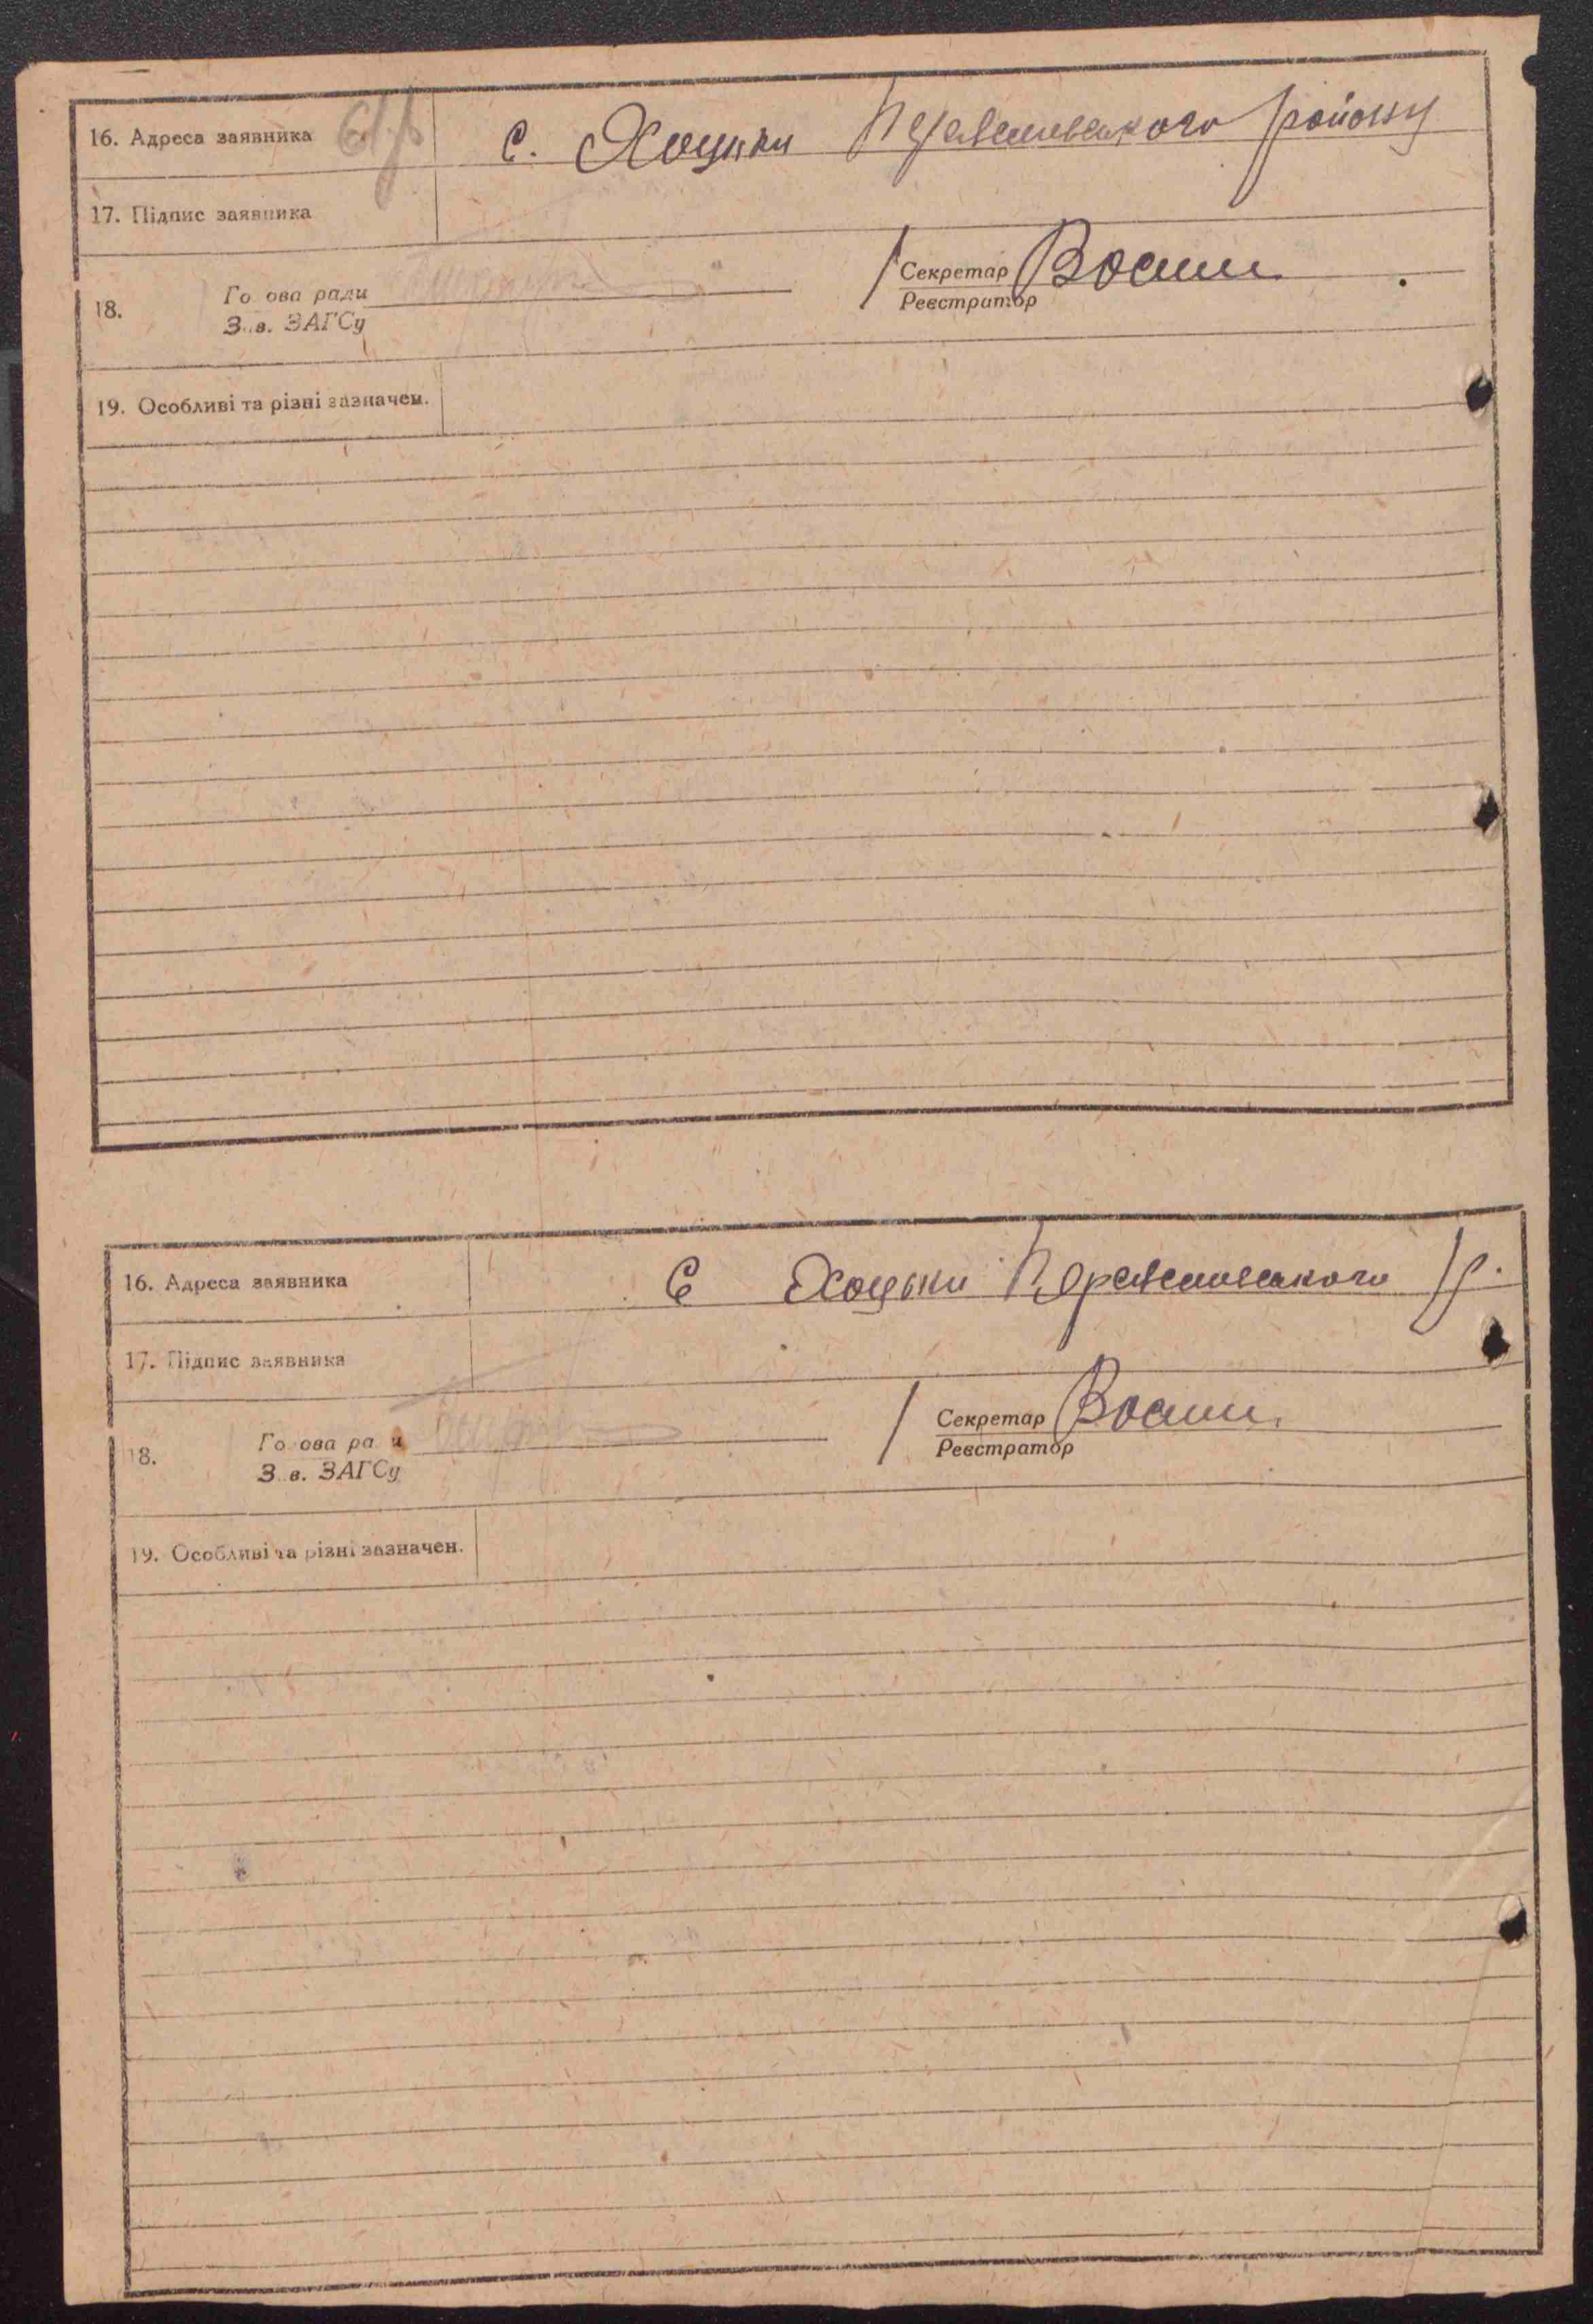 16. Адреса заявника с. Хоцьки Переяславського району
17. Підпис заявника
18. Голова ради Секретар
Зав. ЗАГСу Реєстратор
19. Особливі та різні зазначен.
16. Адреса заявника С Хоцьки Переяславського р.
17. Підпис заявника
18. Голова ради Секретар
Зав. ЗАГСу Реєстратор
19. Особливі та різні зазначен.